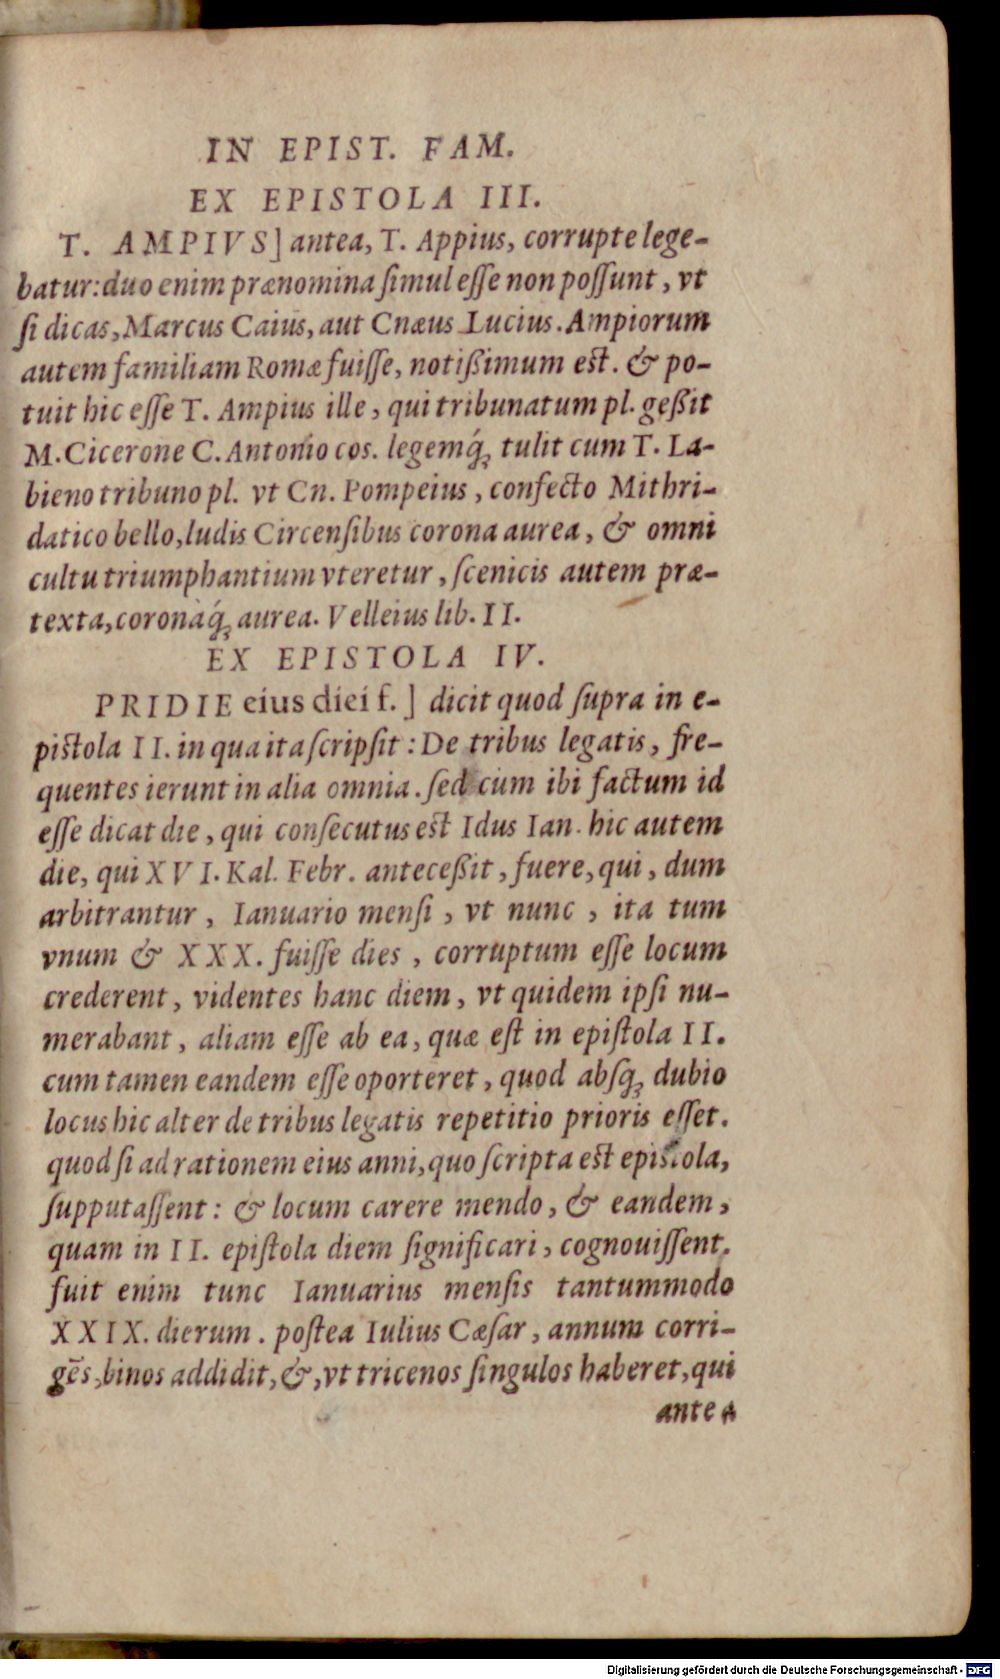 IN EPIST. FAM.
EX EPISTOLA III.
T. AMPIVS] antea, T. Appius, corrupte lege-
batur: duo enim prænomina ſimul eſſe non poſſunt, vt
ſi dicas, Marcus Caius, aut Cnæus Lucius. Ampiorum
autem familiam Romæ fuiſſe, notißimum eſt. & po-
tuit hic eſſe T. Ampius ille, qui tribunatum pl. geßit
M. Cicerone C. Antonio cos. legemq́ꝫ tulit cum T. La-
bieno tribuno pl. vt Cn. Pompeius, confecto Mithri-
datico bello, ludis Circenſibus corona aurea, & omni
cultu triumphantium vteretur, ſcenicis autem præ-
texta, coronàq́ꝫ aurea. Velleius lib. II.
EX EPISTOLA IV.
PRIDIE eius diei f.] dicit quod ſupra in e-
piſtola II. in qua ita ſcripſit: De tribus legatis, fre-
quentes ierunt in alia omnia. ſed cum ibi factum id
eſſe dicat die, qui conſecutus eſt Idus Ian. hic autem
die, qui XVI. Kal. Febr. anteceßit, fuere, qui, dum
arbitrantur, Ianuario menſi, vt nunc, ita tum
vnum & XXX. fuiſſe dies, corruptum eſſe locum
crederent, videntes hanc diem, vt quidem ipſi nu-
merabant, aliam eſſe ab ea, quæ eſt in epiſtola II.
cum tamen eandem eſſe oporteret, quod abſqꝫ dubio
locus hic alter de tribus legatis repetitio prioris eſſet.
quod ſi ad rationem eius anni, quo ſcripta eſt epiſtola,
ſupputaſſent: & locum carere mendo, & eandem,
quam in II. epiſtola diem ſignificari, cognouiſſent.
fuit enim tunc Ianuarius menſis tantummodo
XXIX. dierum. poſtea Iulius Cæſar, annum corri-
gēs, binos addidit, &, vt tricenos ſingulos haberet, qui
antea
Digitalisierung gefördert durch die Deutsche Forschungsgemeinschaft - DFG